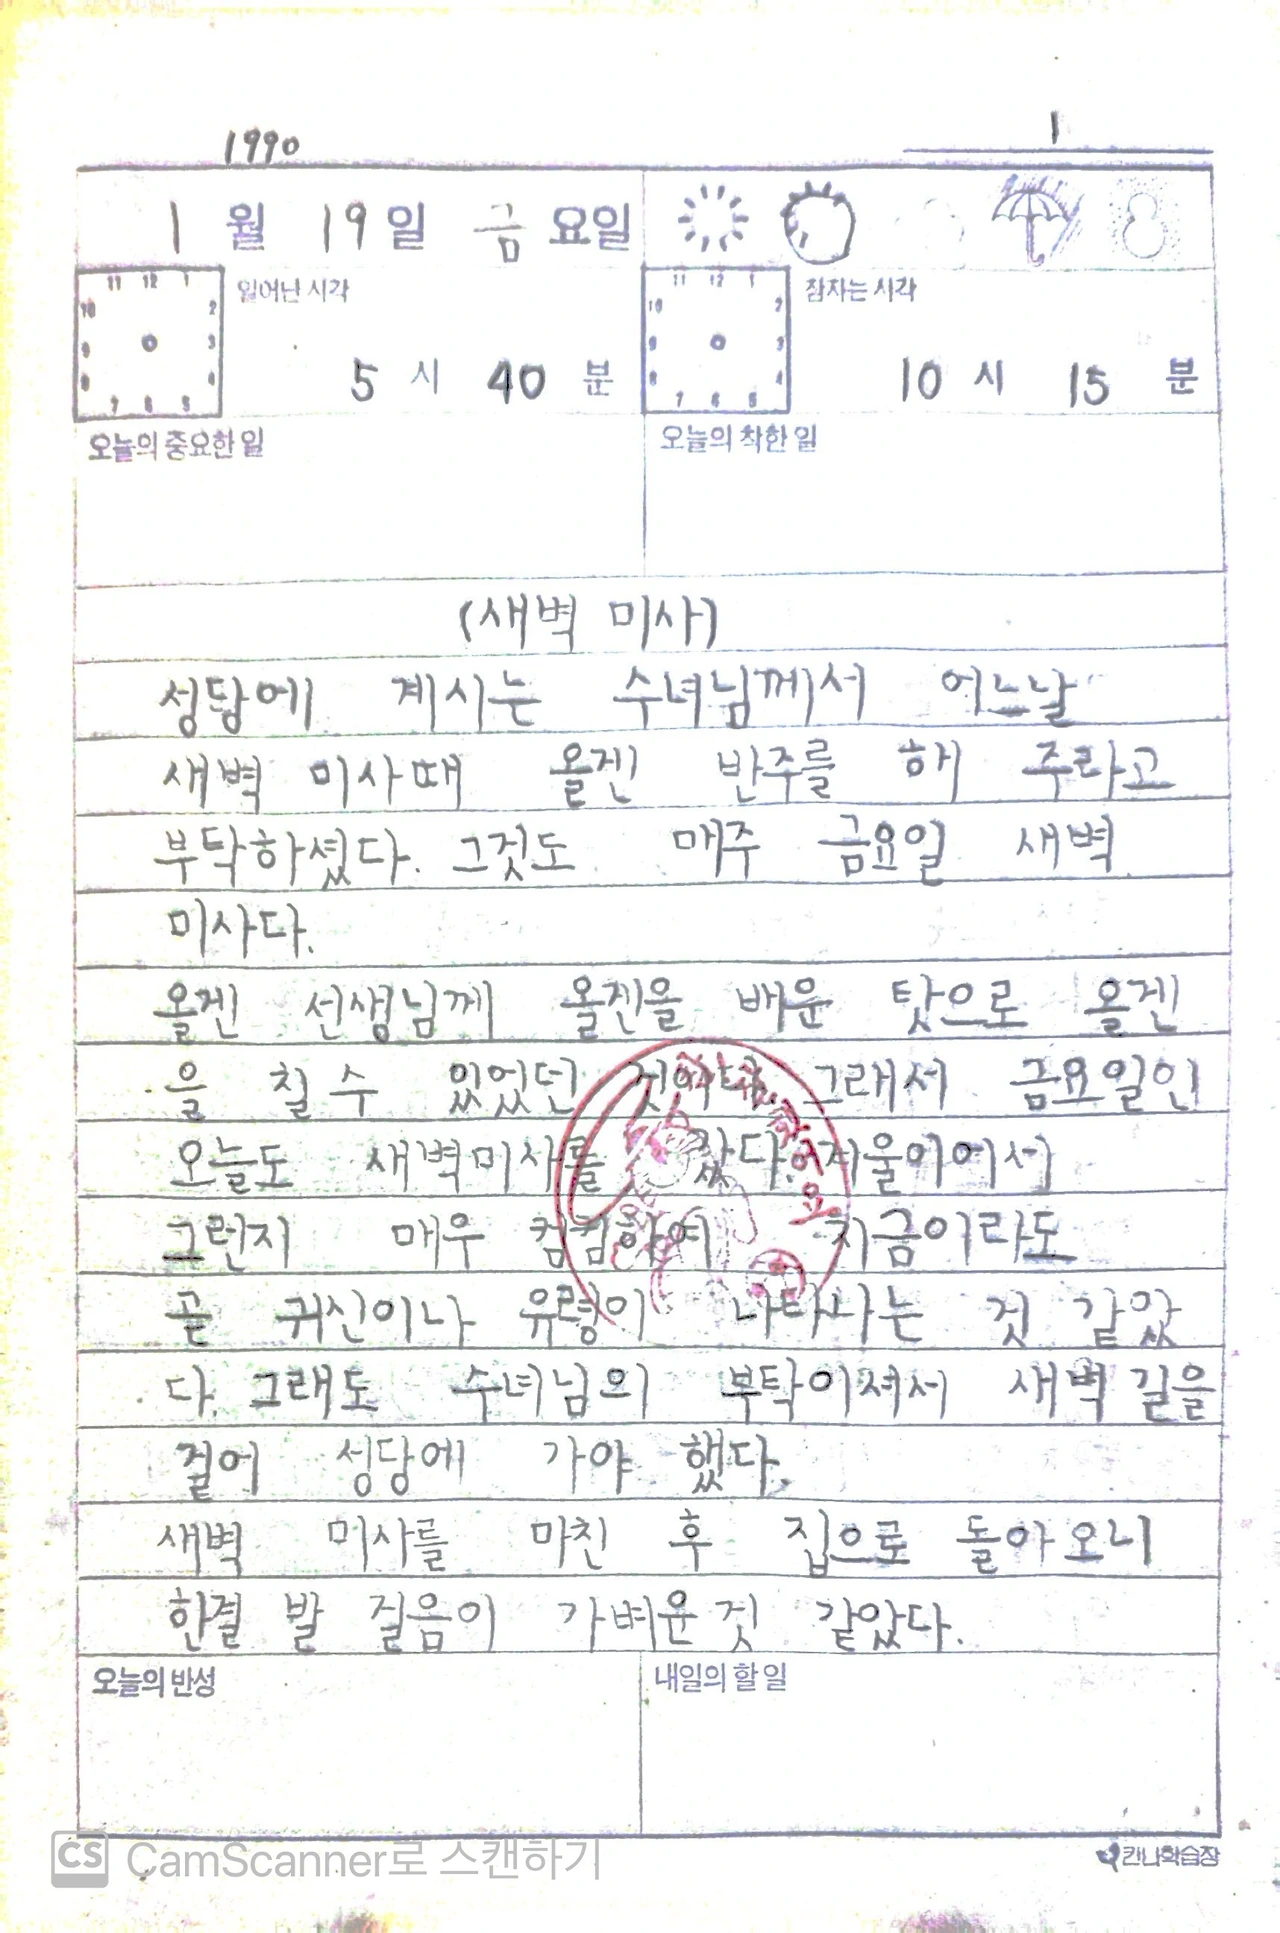 1990
1
1 월 19 일 금 요일
일어난 시각
잠자는 시각
11 12 1
10 2
9 3
8 4
7 6 5
11 12 1
10 2
9 3
8 4
7 6 5
5 시 40 분
10 시 15 분
오늘의 중요한 일
오늘의 착한 일
(새벽 미사)
성담에 계시는 수녀님께서 어느날
새벽 미사때 올겐 반주를 해 주라고
부탁하셨다. 그것도 매주 금요일 새벽
미사다.
올겐 선생님께 올겐을 배운 탓으로 올겐
을 칠 수 있었던 것이다. 그래서 금요일인
오늘도 새벽미사를 갔다. 겨울이어서
그런지 매우 컴컴하여 지금이라도
곧 귀신이나 유령이 나타나는 것 같았
다. 그래도 수녀님의 부탁이셔서 새벽 길을
걸어 성당에 가야 했다.
새벽 미사를 마친 후 집으로 돌아오니
한결 발 걸음이 가벼운 것 같았다.
오늘의 반성
내일의 할 일
CS CamScanner로 스캔하기
칸나학습장